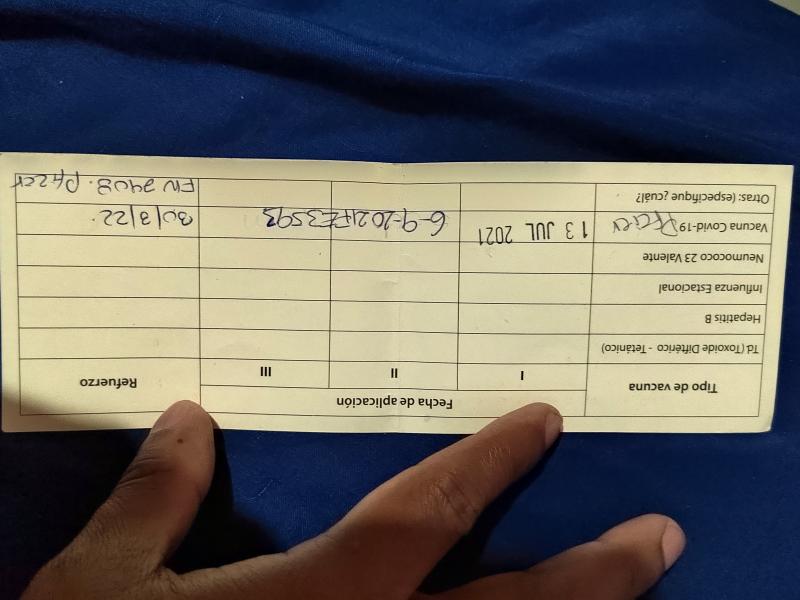 Tipo de vacuna Fecha de aplicación Refuerzo
I II III
Td (Toxoide Diftérico - Tetánico)
Hepatitis B
Influenza Estacional
Neumococo 23 Valente
Vacuna Covid-19 Pfizer 13 JUL 2021 6-9-2021 FE3593 30/3/22.
Otras: (especifique ¿cuál? FN 2908. Pfizer